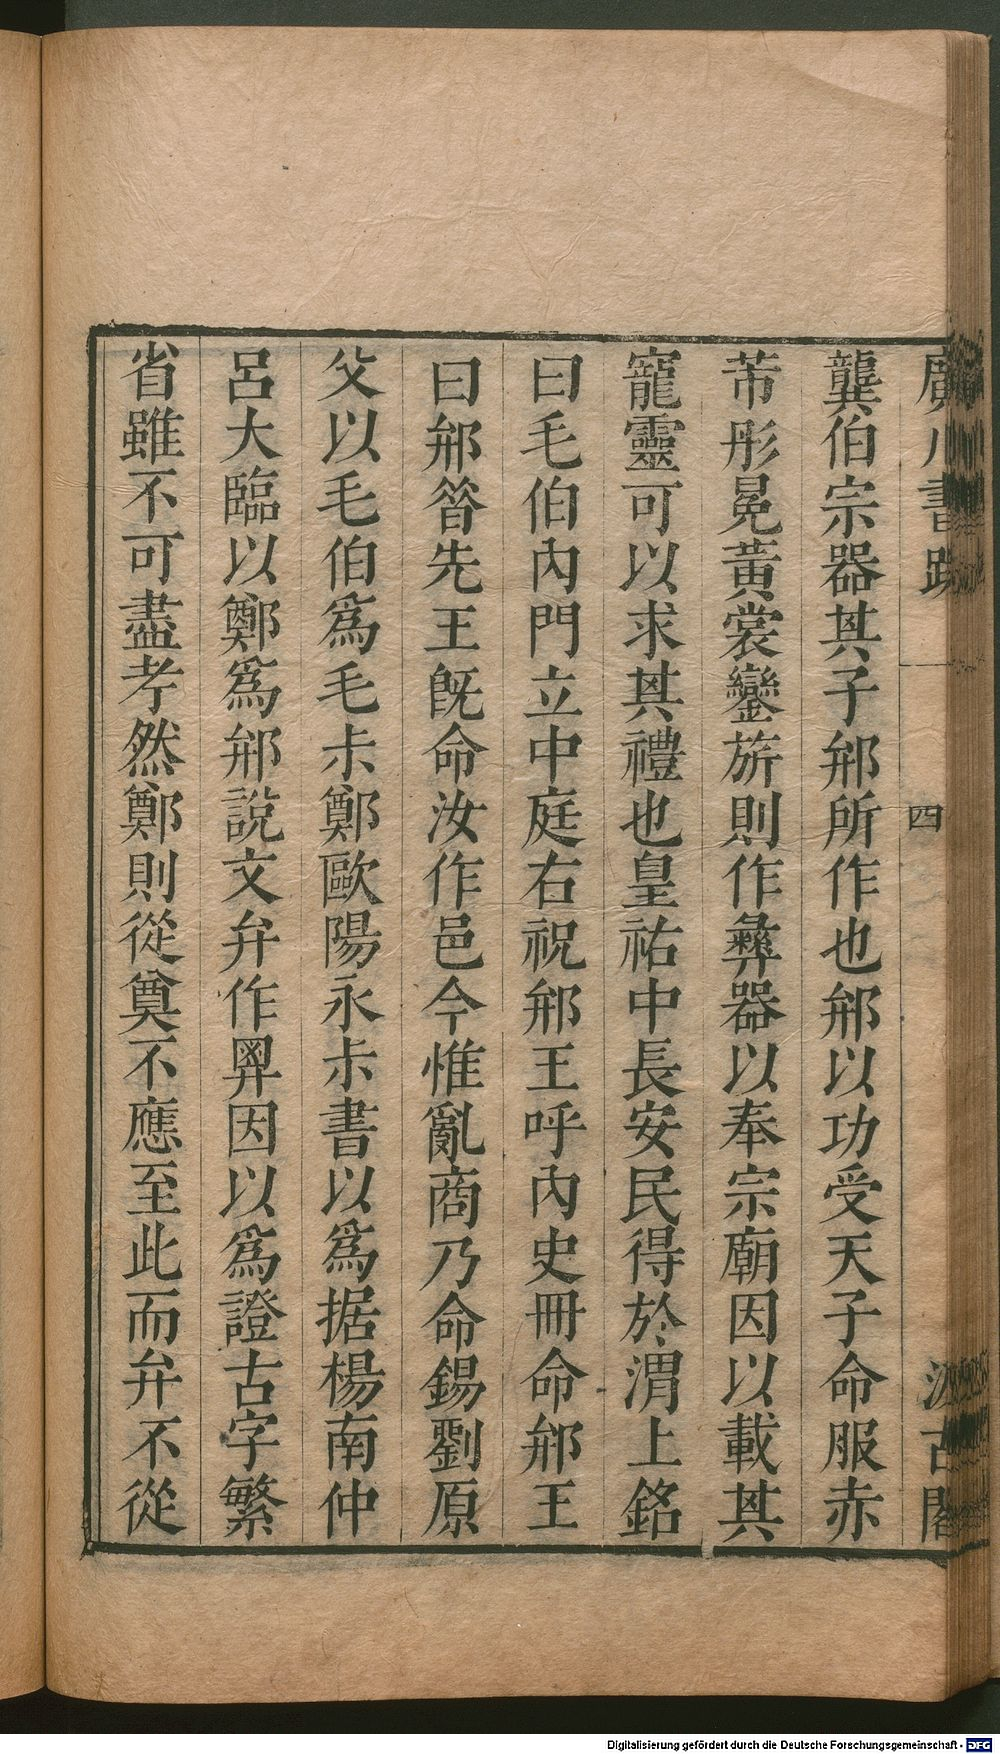 廣川書跋
四
汲古閣
龔伯宗器其子䢵所作也䢵以功受天子命服赤
芾彤冕黃裳鑾旂則作彝器以奉宗廟因以載其
寵靈可以求其禮也皇祐中長安民得於渭上銘
曰毛伯內門立中庭右祝䢵王呼內史冊命䢵王
曰䢵昝先王旣命汝作邑今惟亂商乃命錫劉原
父以毛伯爲毛尗鄭歐陽永尗書以爲据楊南仲
呂大臨以鄭爲䢵說文弁作𢍏因以爲證古字繁
省雖不可盡考然鄭則從奠不應至此而弁不從
Digitalisierung gefördert durch die Deutsche Forschungsgemeinschaft - DFG